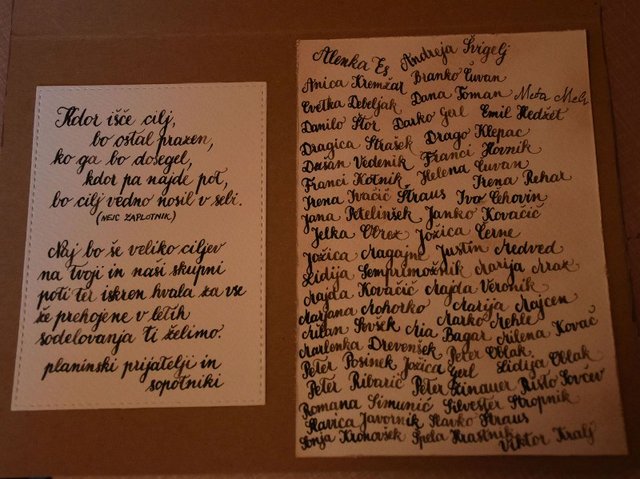 Kdor išče cilj,
bo ostal prazen,
ko ga bo dosegel,
kdor pa najde pot,
bo cilj vedno nosil v sebi.
(NEJC ZAPLOTNIK)
Naj bo še veliko ciljev
na tvoji in naši skupni
poti ter iskren hvala za vse
že prehojene v letih
sodelovanja ti želimo.
planinski prijatelji in
sopotniki
Alenka Es Andreja Švigelj
Anica Kremžar Branko Čuvan
Cvetka Debeljak, Dana Toman Meta
Danilo Štor Darko Gerl Emil Hedžet
Dragica Strašek Drago Klepac
Dušan Vedenik Franci Hovnik
Franci Kotnik Helena Čuvan
Irena Ivačič Štraus Irena Rehar
Jana Petelinšek Janko Kovačič Ivo Čehovin
Jelka Obrez Jožica Černe
Jožica Magajne Justin Medved
Lidija Semprimožnik Marija Mraz
Majda Kovačič Majda Veronik
Marjana Mohorko Marija Majcen
Milan Ševšek Mia Marko Mehle
Marlenka Drevenšek Bagar Milena Kovač
Peter Posinek Jožica Gerl Peter Oblak Lidija Oblak
Peter Ribarič Peter Risto
Romana Simunič Silvester Stropnik
Slavica Javornik Slavko Štraus
Sonja Kronovšek Špela Hrastnik Viktor Kralj